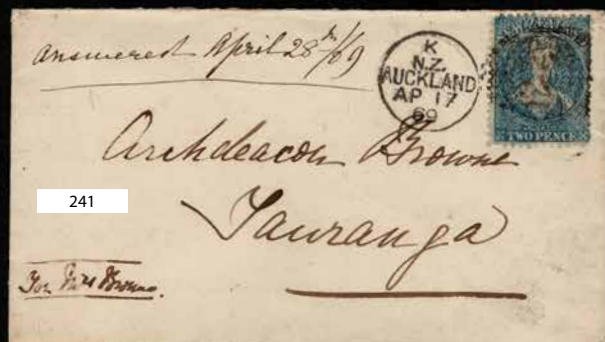 answered April 28th/69
K
N.Z.
AUCKLAND
AP 17
69
TWO PENCE
Archdeacon Browne
Tauranga
241
For Mrs Browne.